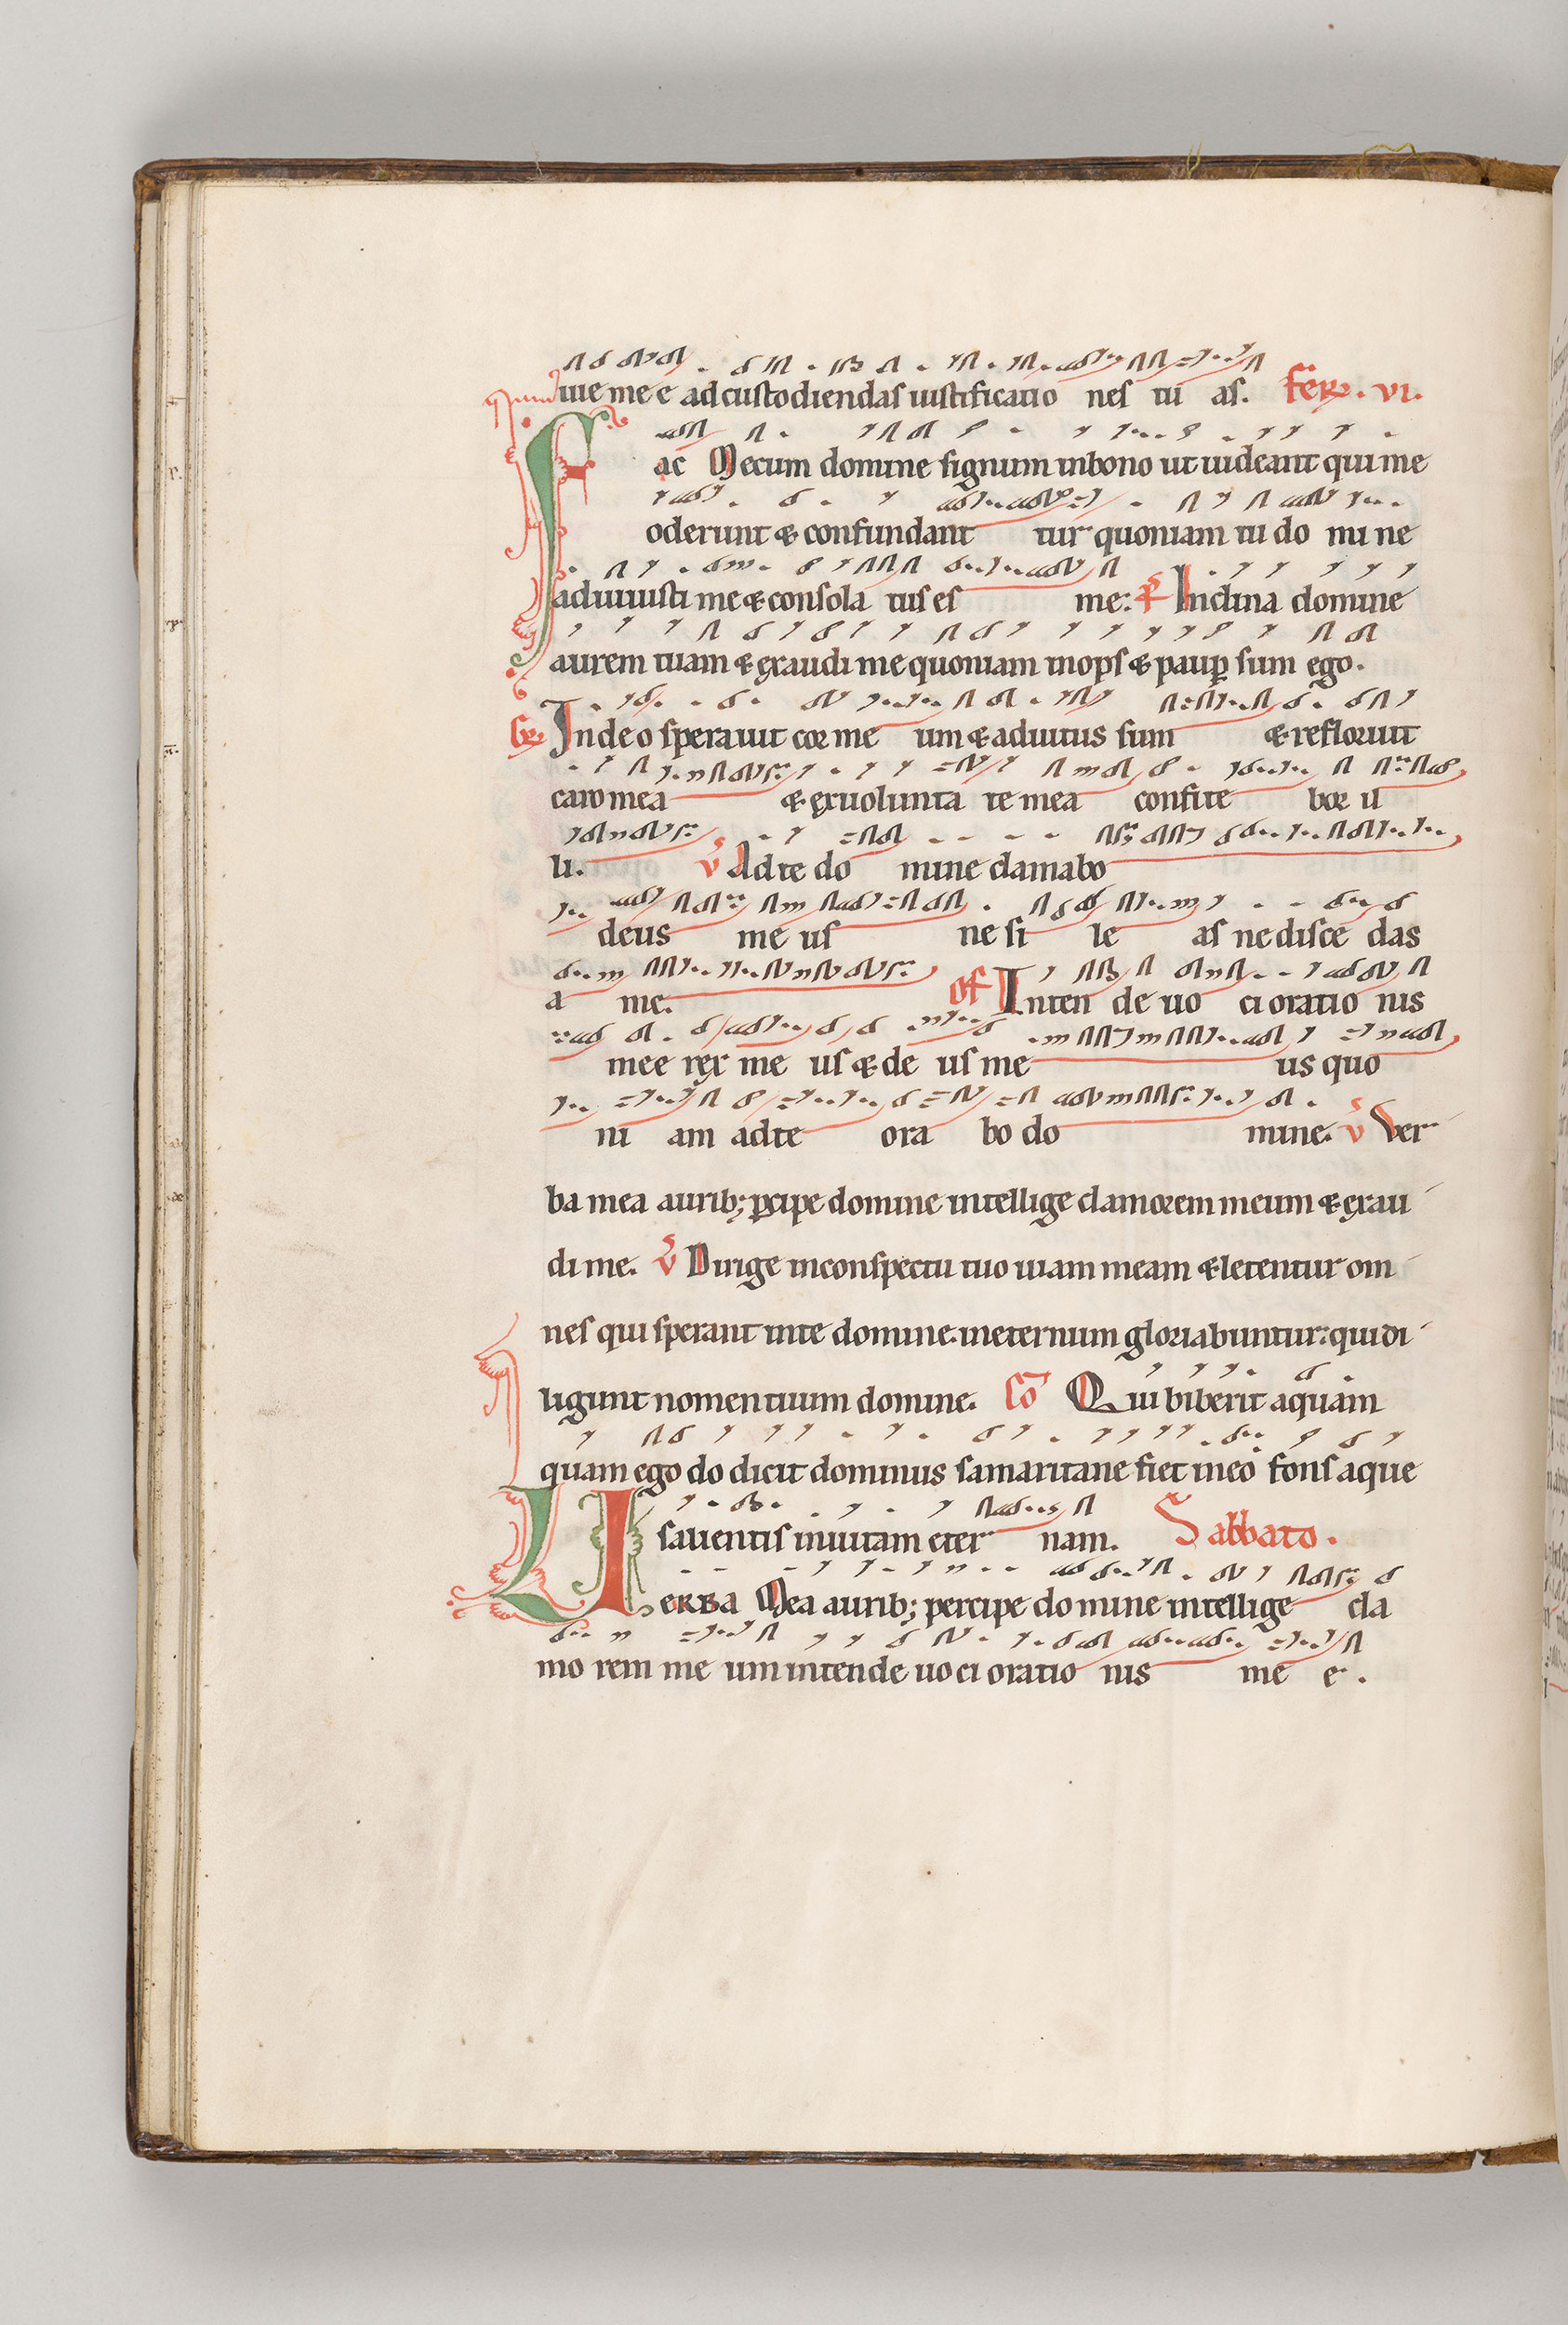 uie me e ad custodiendas iustificatio nes tu as. Fer. vi.
Fac Mecum domine signum in bono ut uideant qui me
oderunt & confundant tur quoniam tu do mi ne
adiuuisti me & consola tus es me: Ps Inclina domine
aurem tuam & exaudi me quoniam inops & paup sum ego.
Gr In deo sperauit cor me um & adiutus sum & refloruit
caro mea & ex uolunta te mea confite bor il
li. v Ad te do mine clamabo
deus me us ne si le as ne disce das
a me. Of Inten de uo ci oratio nis
mee rex me us & de us me us quo
ni am ad te ora bo do mine. v Ver
ba mea aurib; pcipe domine intellige clamorem meum & exau
di me. v Dirige in conspectu tuo uiam meam & letentur om
nes qui sperant in te domine. in eternum gloriabuntur: qui di
ligunt nomen tuum domine. Co Qui biberit aquam
quam ego do dicit dominus samaritane fiet in eo fons aque
salientis in uitam eter nam. Sabbato.
VERBA Mea aurib; percipe domine intellige cla
mo rem me um intende uoci oratio nis me e.